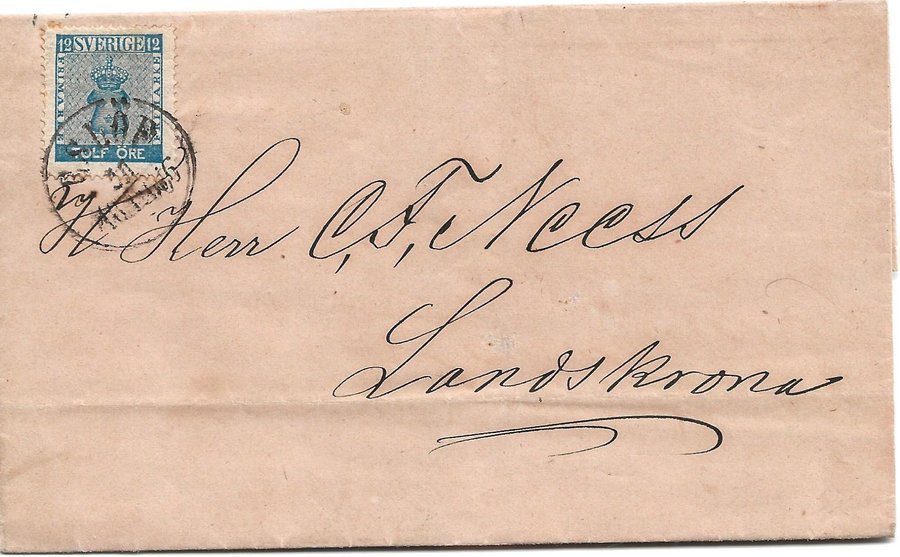 12 SVERIGE 12
FRIMÄRKE
FRIMÄRKE
TOLF ÖRE
Herr C, F, Neess
Landskrona